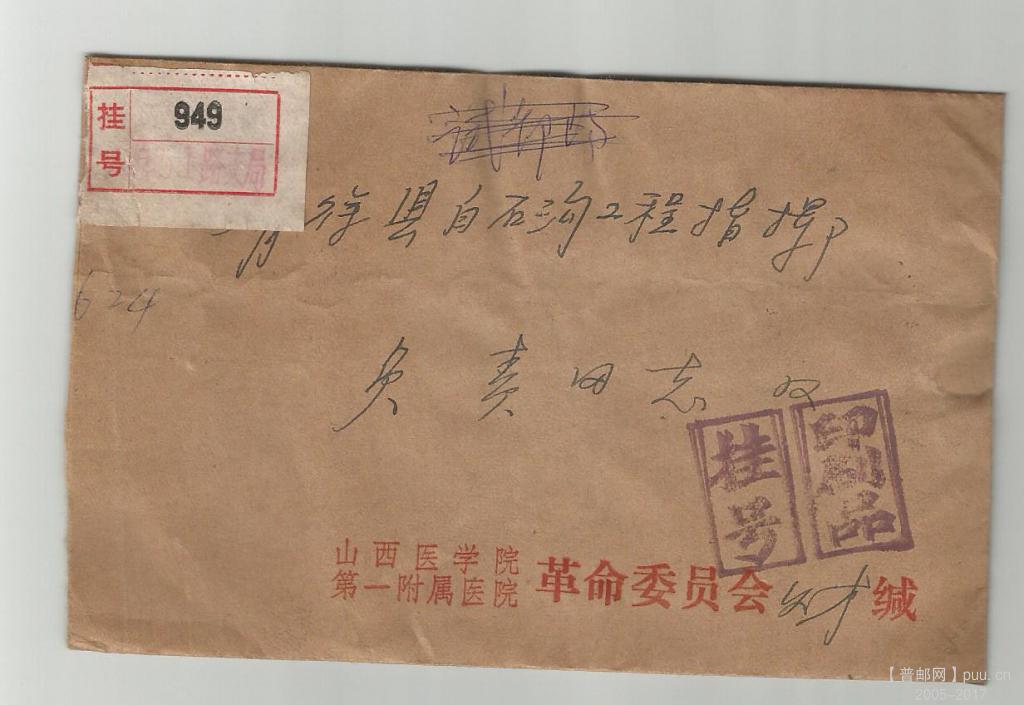 挂号
949
清徐县白石沟工程指挥部
624
负责同志收
挂号
印刷品
山西医学院
第一附属医院
革命委员会 缄
【普邮网】puu.cn
2005-2017